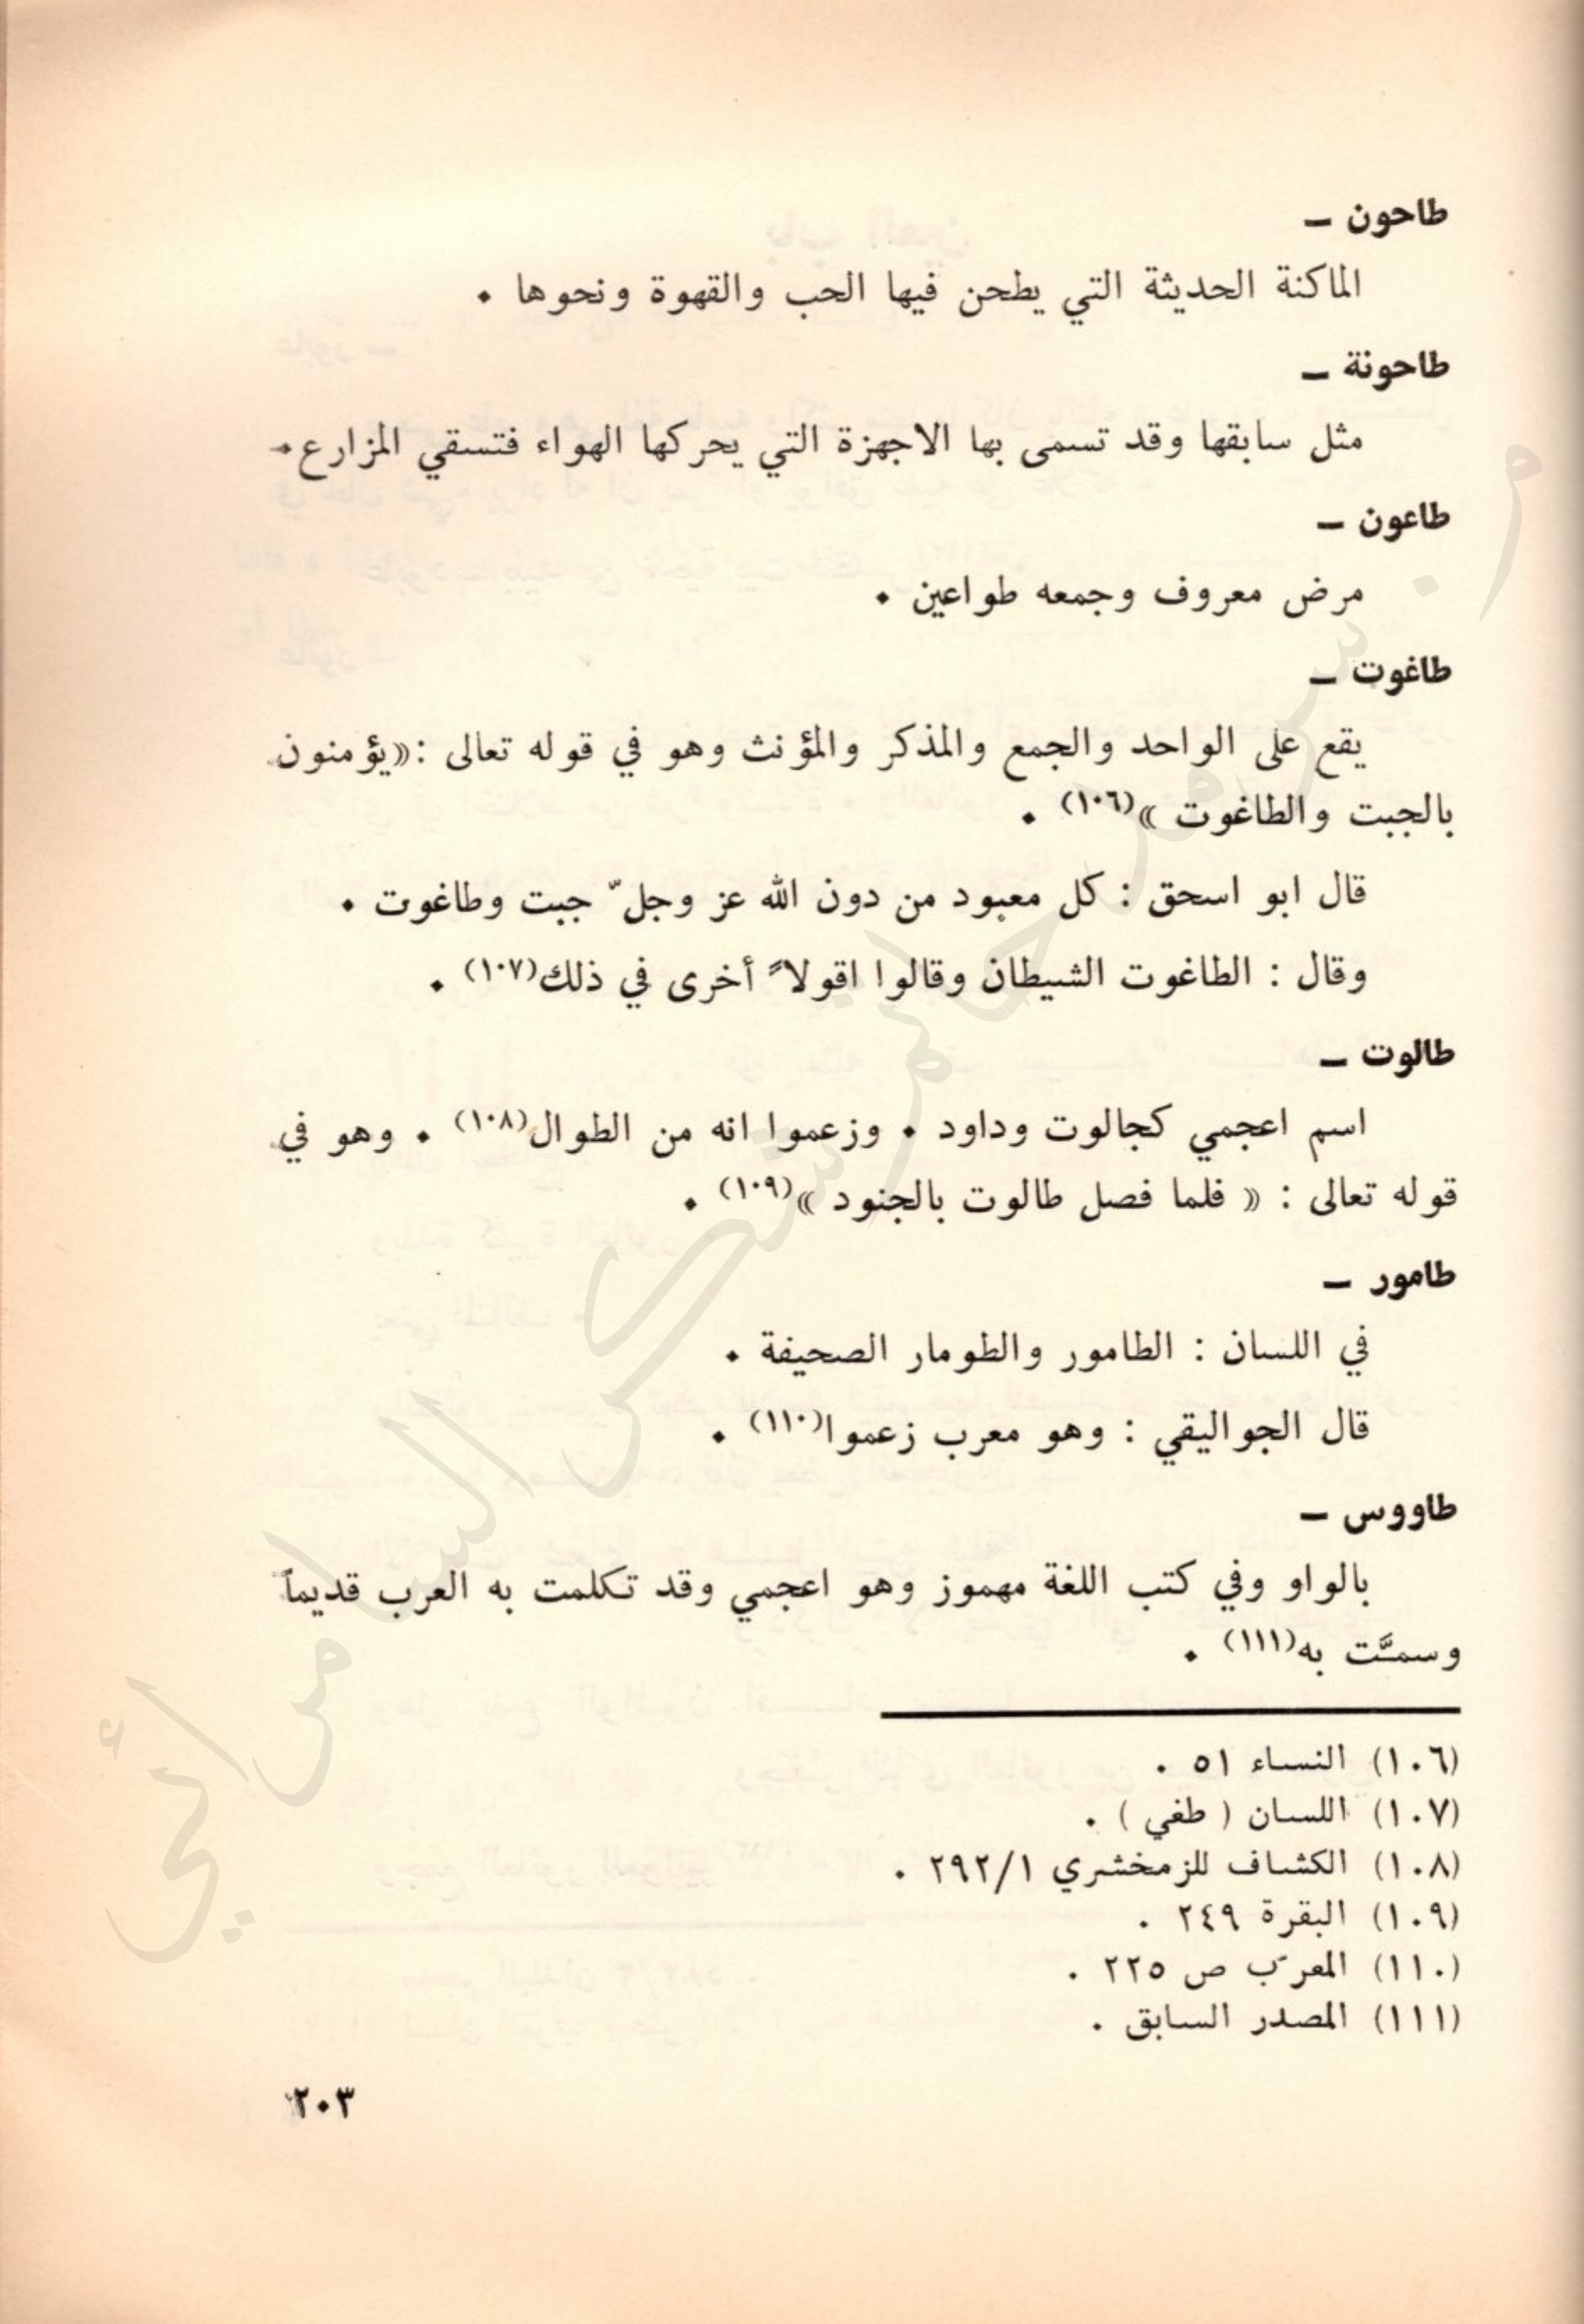 طاحون —
الماكنة الحديثة التي يطحن فيها الحب والقهوة ونحوها .
طاحونة —
مثل سابقها وقد تسمى بها الاجهزة التي يحركها الهواء فتسقي المزارع .
طاعون —
مرض معروف وجمعه طواعين .
طاغوت —
يقع على الواحد والجمع والمذكر والمؤنث وهو في قوله تعالى :«يؤمنون
بالجبت والطاغوت »(١٠٦) .
قال ابو اسحق : كل معبود من دون الله عز وجلّ جبت وطاغوت .
وقال : الطاغوت الشيطان وقالوا اقولاً أخرى في ذلك(١٠٧) .
طالوت —
اسم اعجمي كجالوت وداود . وزعموا انه من الطوال(١٠٨) . وهو في
قوله تعالى : « فلما فصل طالوت بالجنود »(١٠٩) .
طامور —
في اللسان : الطامور والطومار الصحيفة .
قال الجواليقي : وهو معرب زعموا(١١٠) .
طاووس —
بالواو وفي كتب اللغة مهموز وهو اعجمي وقد تكلمت به العرب قديماً
وسمَّت به(١١١) .
(١٠٦) النساء ٥١ .
(١٠٧) اللسان ( طغي ) .
(١٠٨) الكشاف للزمخشري ٢٩٢/١ .
(١٠٩) البقرة ٢٤٩ .
(١١٠) المعرّب ص ٢٢٥ .
(١١١) المصدر السابق .
٢٠٣